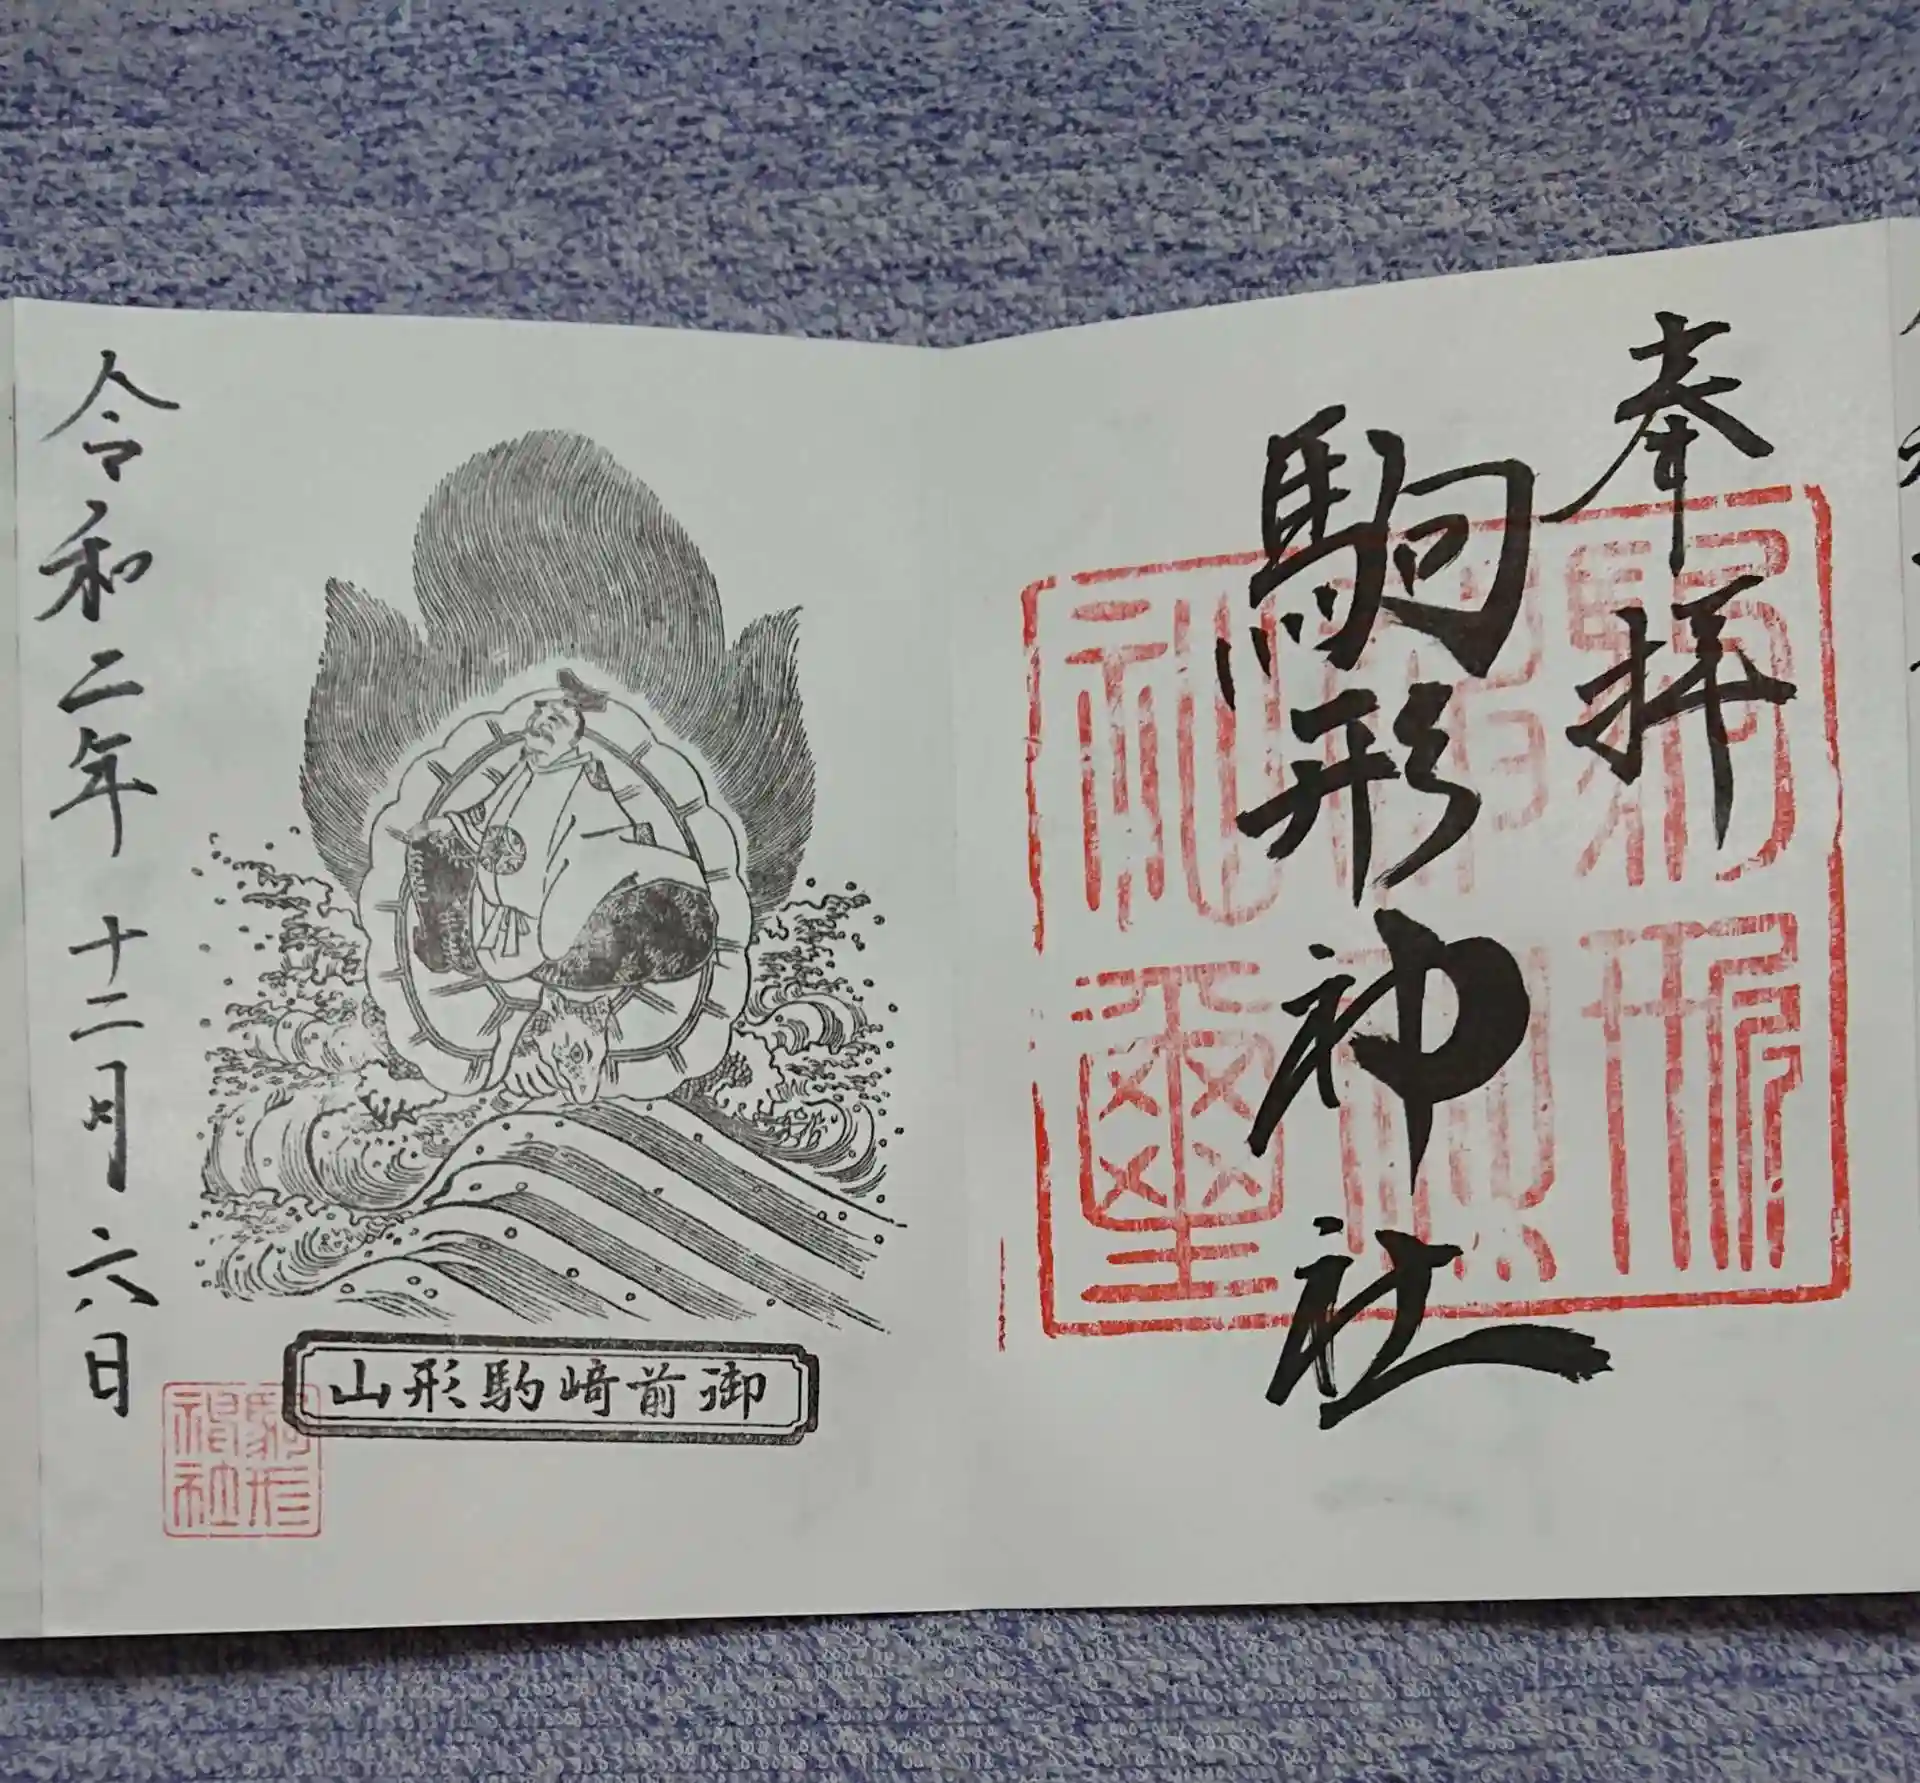 奉拝
駒形神社
駒形神社神璽
御前﨑駒形山
令和二年十二月六日
駒形神社